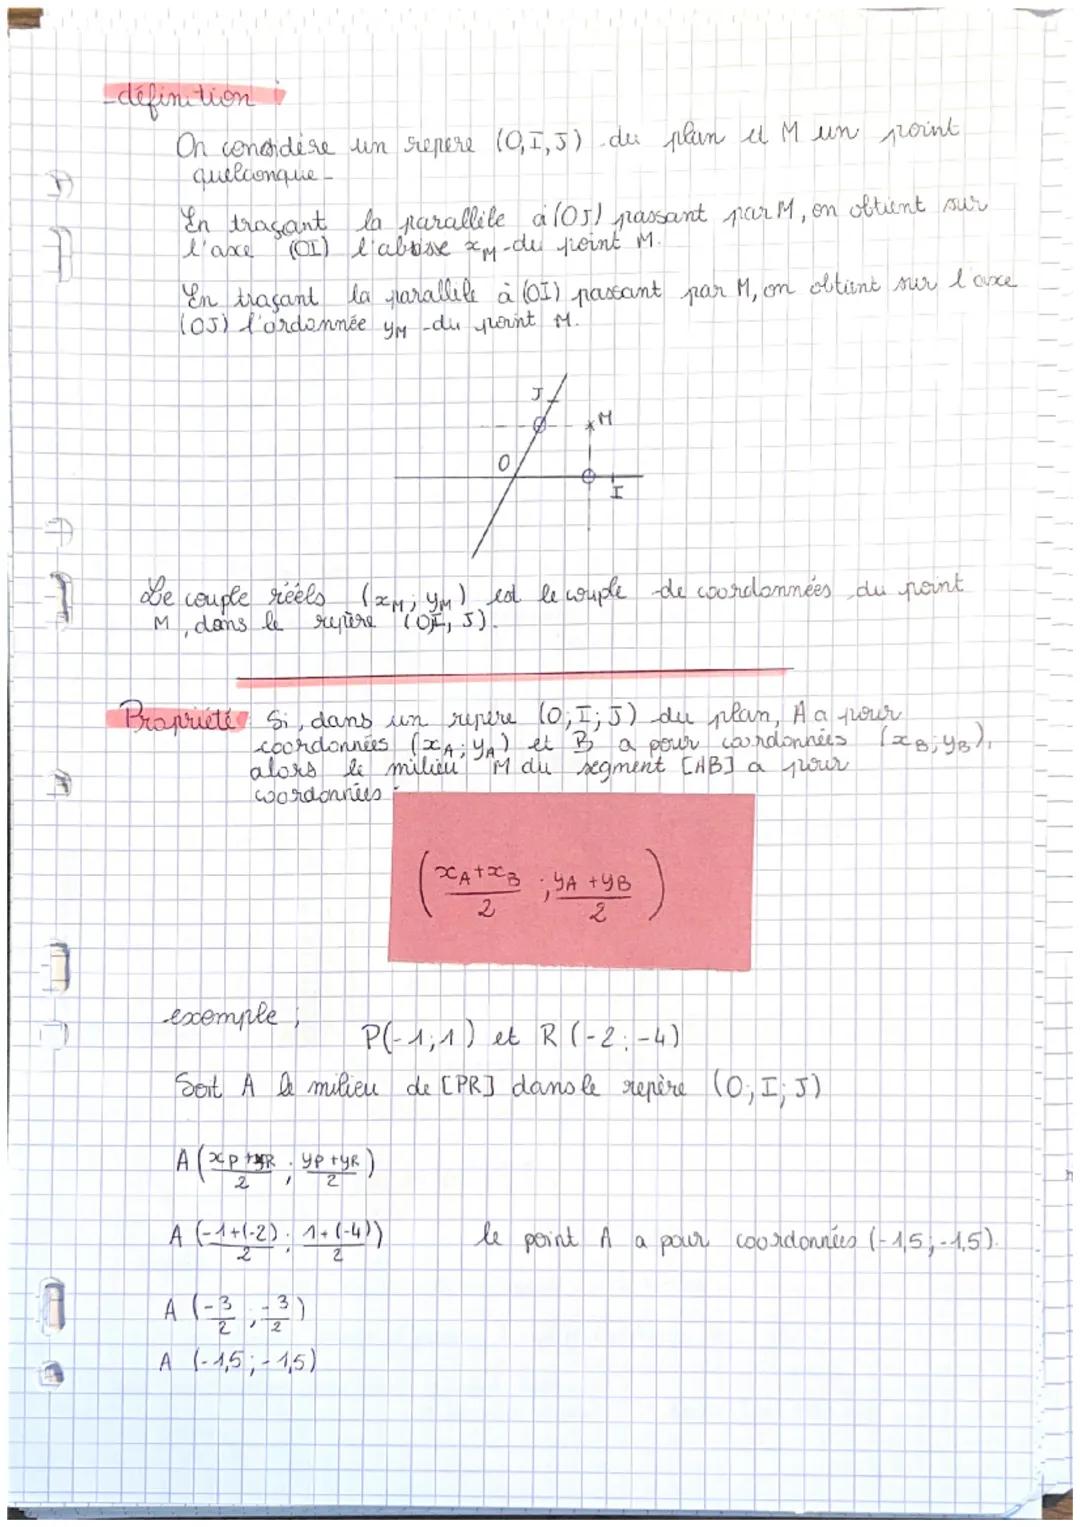 définition :
On considère un repere (O,I,J) du plan et M un point
quelconque
En traçant la parallèle à (OJ) passant par M, on obtient sur
l'axe (OI) l'abscisse xM du point M.
En traçant la parallèle à (OI) passant par M, on obtient sur l'axe
(OJ) l'ordonnée yM du point M.
J
M
O
I
Le couple réèls (xM; yM) est le couple de coordonnées du point
M, dans le repère (O,I, J).
Propriété Si, dans un repère (O; I; J) du plan, A a pour
coordonnées (xA; yA) et B a pour coordonnées (xB; yB),
alors le milieu M du segment [AB] a pour
coordonnées :
((xA+xB)/2 ; (yA+yB)/2)
exemple ;
P(-1;1) et R (-2;-4)
Soit A le milieu de [PR] dans le repère (O; I; J)
A ((xP+xR)/2 ; (yP+yR)/2)
A ((-1+(-2))/2 ; (1+(-4))/2) le point A a pour coordonnées (-1,5;-1,5).
A (-3/2 ; -3/2)
A (-1,5;-1,5)